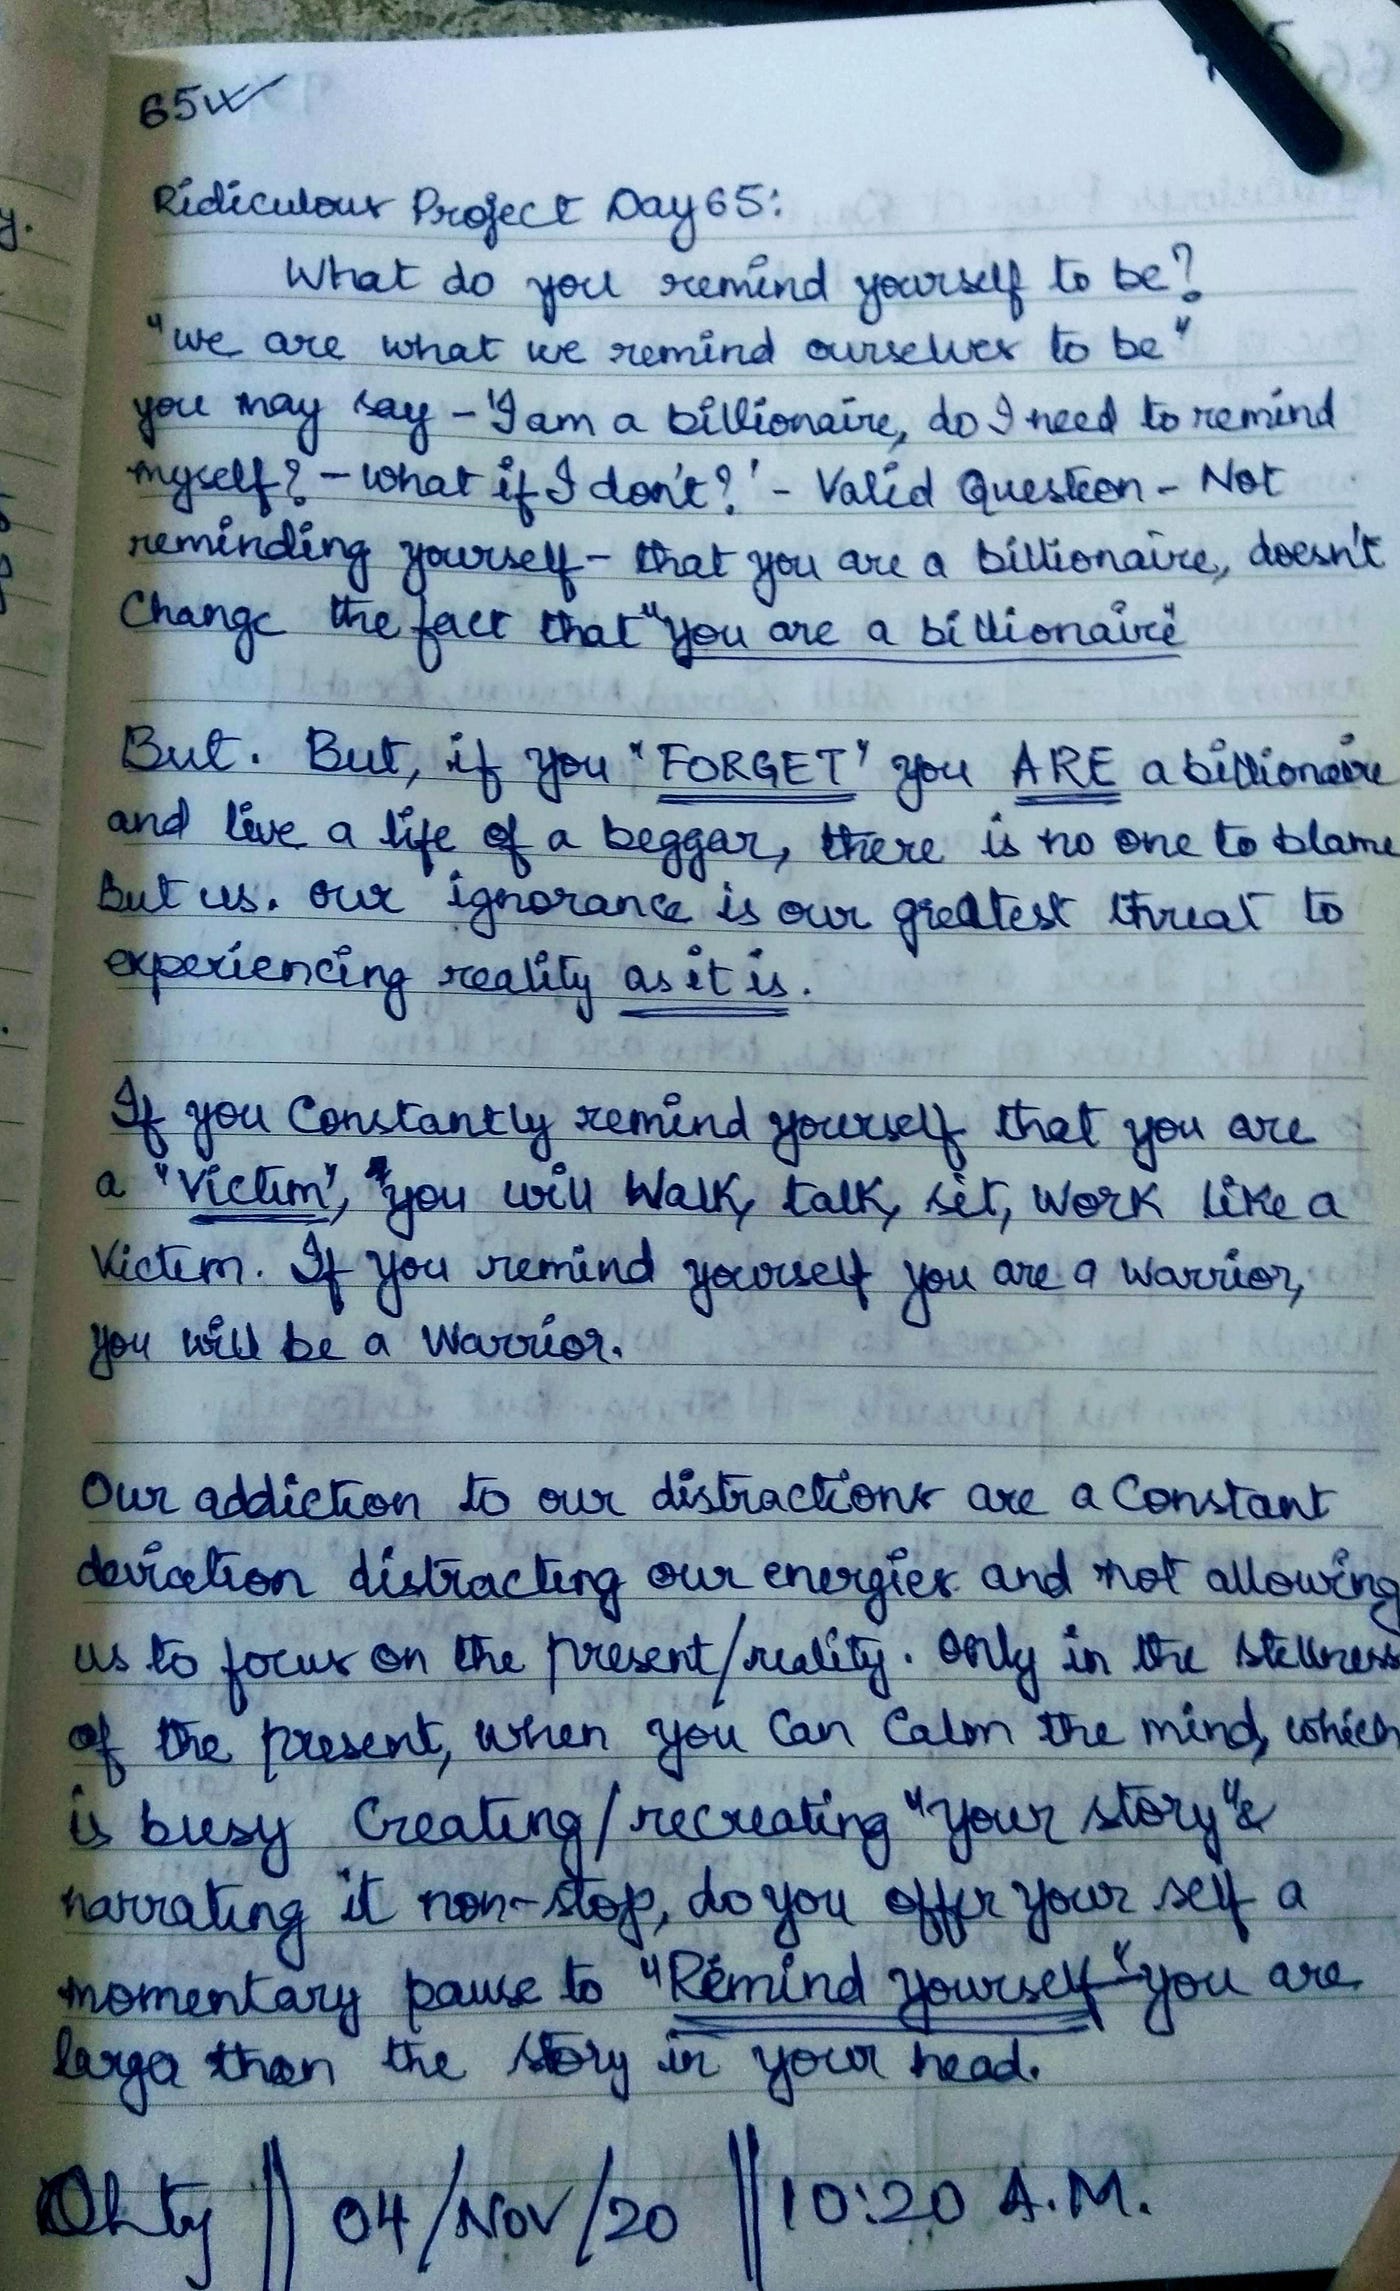 65
Ridiculous Project Day 65:
What do you remind yourself to be?
"we are what we remind ourselves to be"
you may say - 'I am a billionaire, do I need to remind
myself? - what if I don't?' - Valid Question - Not
reminding yourself - that you are a billionaire, doesn't
Change the fact that "you are a billionaire"
But. But, if you "FORGET" you ARE a billionaire
and live a life of a beggar, there is no one to blame
But us. our ignorance is our greatest threat to
experiencing reality as it is.
If you Constantly remind yourself that you are
a "Victim", you will Walk, talk, sit, work like a
Victim. If you remind yourself you are a warrior,
you will be a Warrior.
Our addiction to our distractions are a Constant
deviation distracting our energies and not allowing
us to focus on the present/reality. Only in the stillness
of the present, when you Can Calm the mind, which
is busy Creating/recreating "your story" &
narrating it non-stop, do you offer your self a
momentary pause to "Remind yourself" you are
larga than the story in your head.
|| 04/Nov/20 || 10:20 A.M.